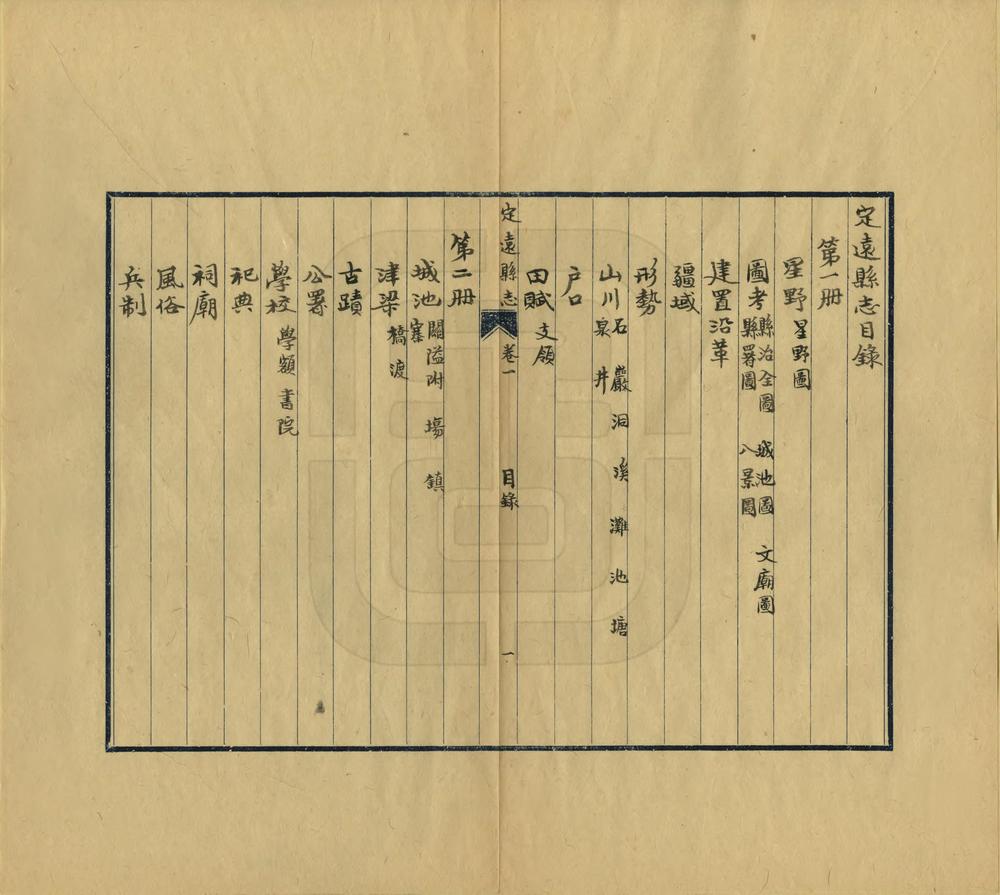 定遠縣志目錄
第一册
星野 星野圖
圖考 縣治全圖 城池圖 文廟圖
縣署圖 八景圖
建置沿革
疆域
形勢
山川 石 巖 洞 溪 灘 池 塘
泉 井
户口
田賦 支領
定遠縣志 卷一 目錄 一
第二册
城池 關隘附 場 鎮
寨
津梁 橋 渡
古蹟
公署
學校 學額 書院
祀典
祠廟
風俗
兵制